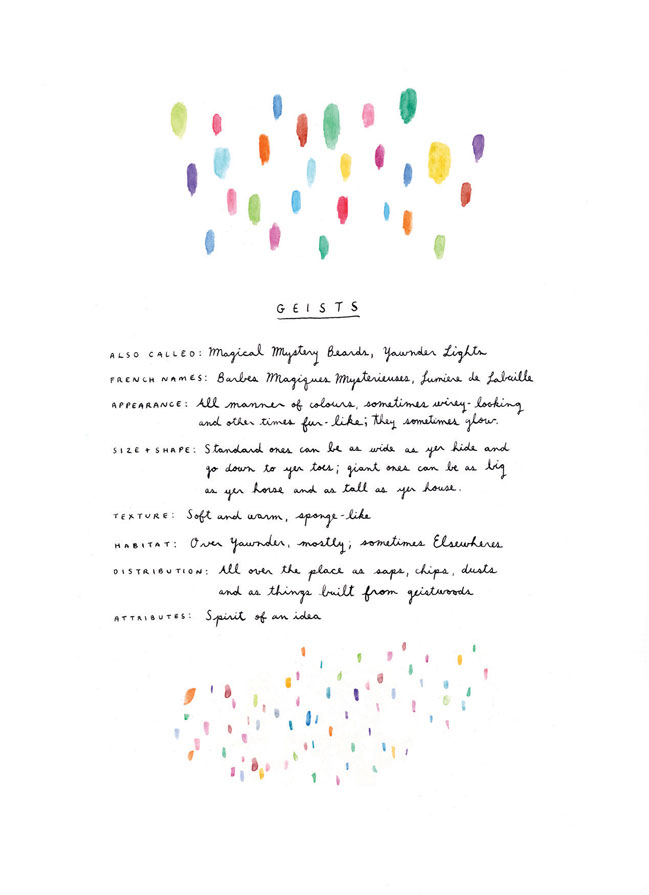 GEISTS
ALSO CALLED: Magical Mystery Beards, Yawnder Lights
FRENCH NAMES: Barbes Magiques Mysterieuses, Lumiere de Labaille
APPEARANCE: All manner of colours, sometimes wirey-looking
and other times fur-like; they sometimes glow.
SIZE + SHAPE: Standard ones can be as wide as yer hide and
go down to yer toes; giant ones can be as big
as yer horse and as tall as yer house.
TEXTURE: Soft and warm, sponge-like
HABITAT: Over Yawnder, mostly; sometimes Elsewheres
DISTRIBUTION: All over the place as saps, chips, dusts
and as things built from geistwoods
ATTRIBUTES: Spirit of an idea